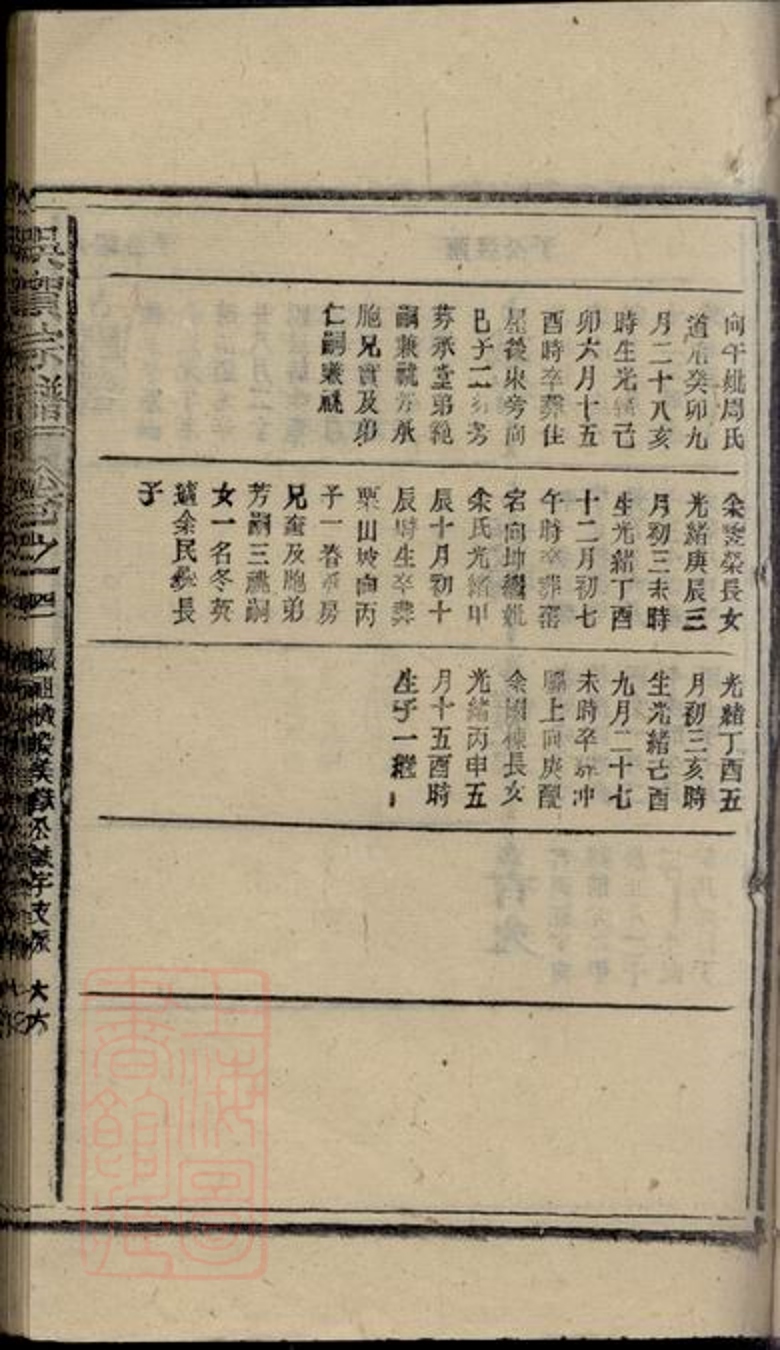 向午妣周氏
道光癸卯九
月二十八亥
時生光緒己
卯六月十五
酉時卒葬住
屋後東旁向
巳子二芬芳
芬承堂弟
嗣兼祧芳承
胞兄實及弟
仁嗣兼祧
余榮長女
光緒庚辰三
月初三未時
生光緒丁酉
十二月初七
午時卒葬窑
宕向坤繼妣
余氏光緒甲
辰十月初十
辰時生卒葬
栗山坡向丙
子一春承房
兄奎及胞弟
芳嗣三祧嗣
女一名冬英
適余民長
子
光緒丁酉五
月初三亥時
生光緒己酉
九月二十七
未時卒葬冲
腦上向庚配
余國棟長女
光緒丙申五
月十五酉時
生子一繼
宗譜 卷之一
公義字支派 大六
上海圖書館藏